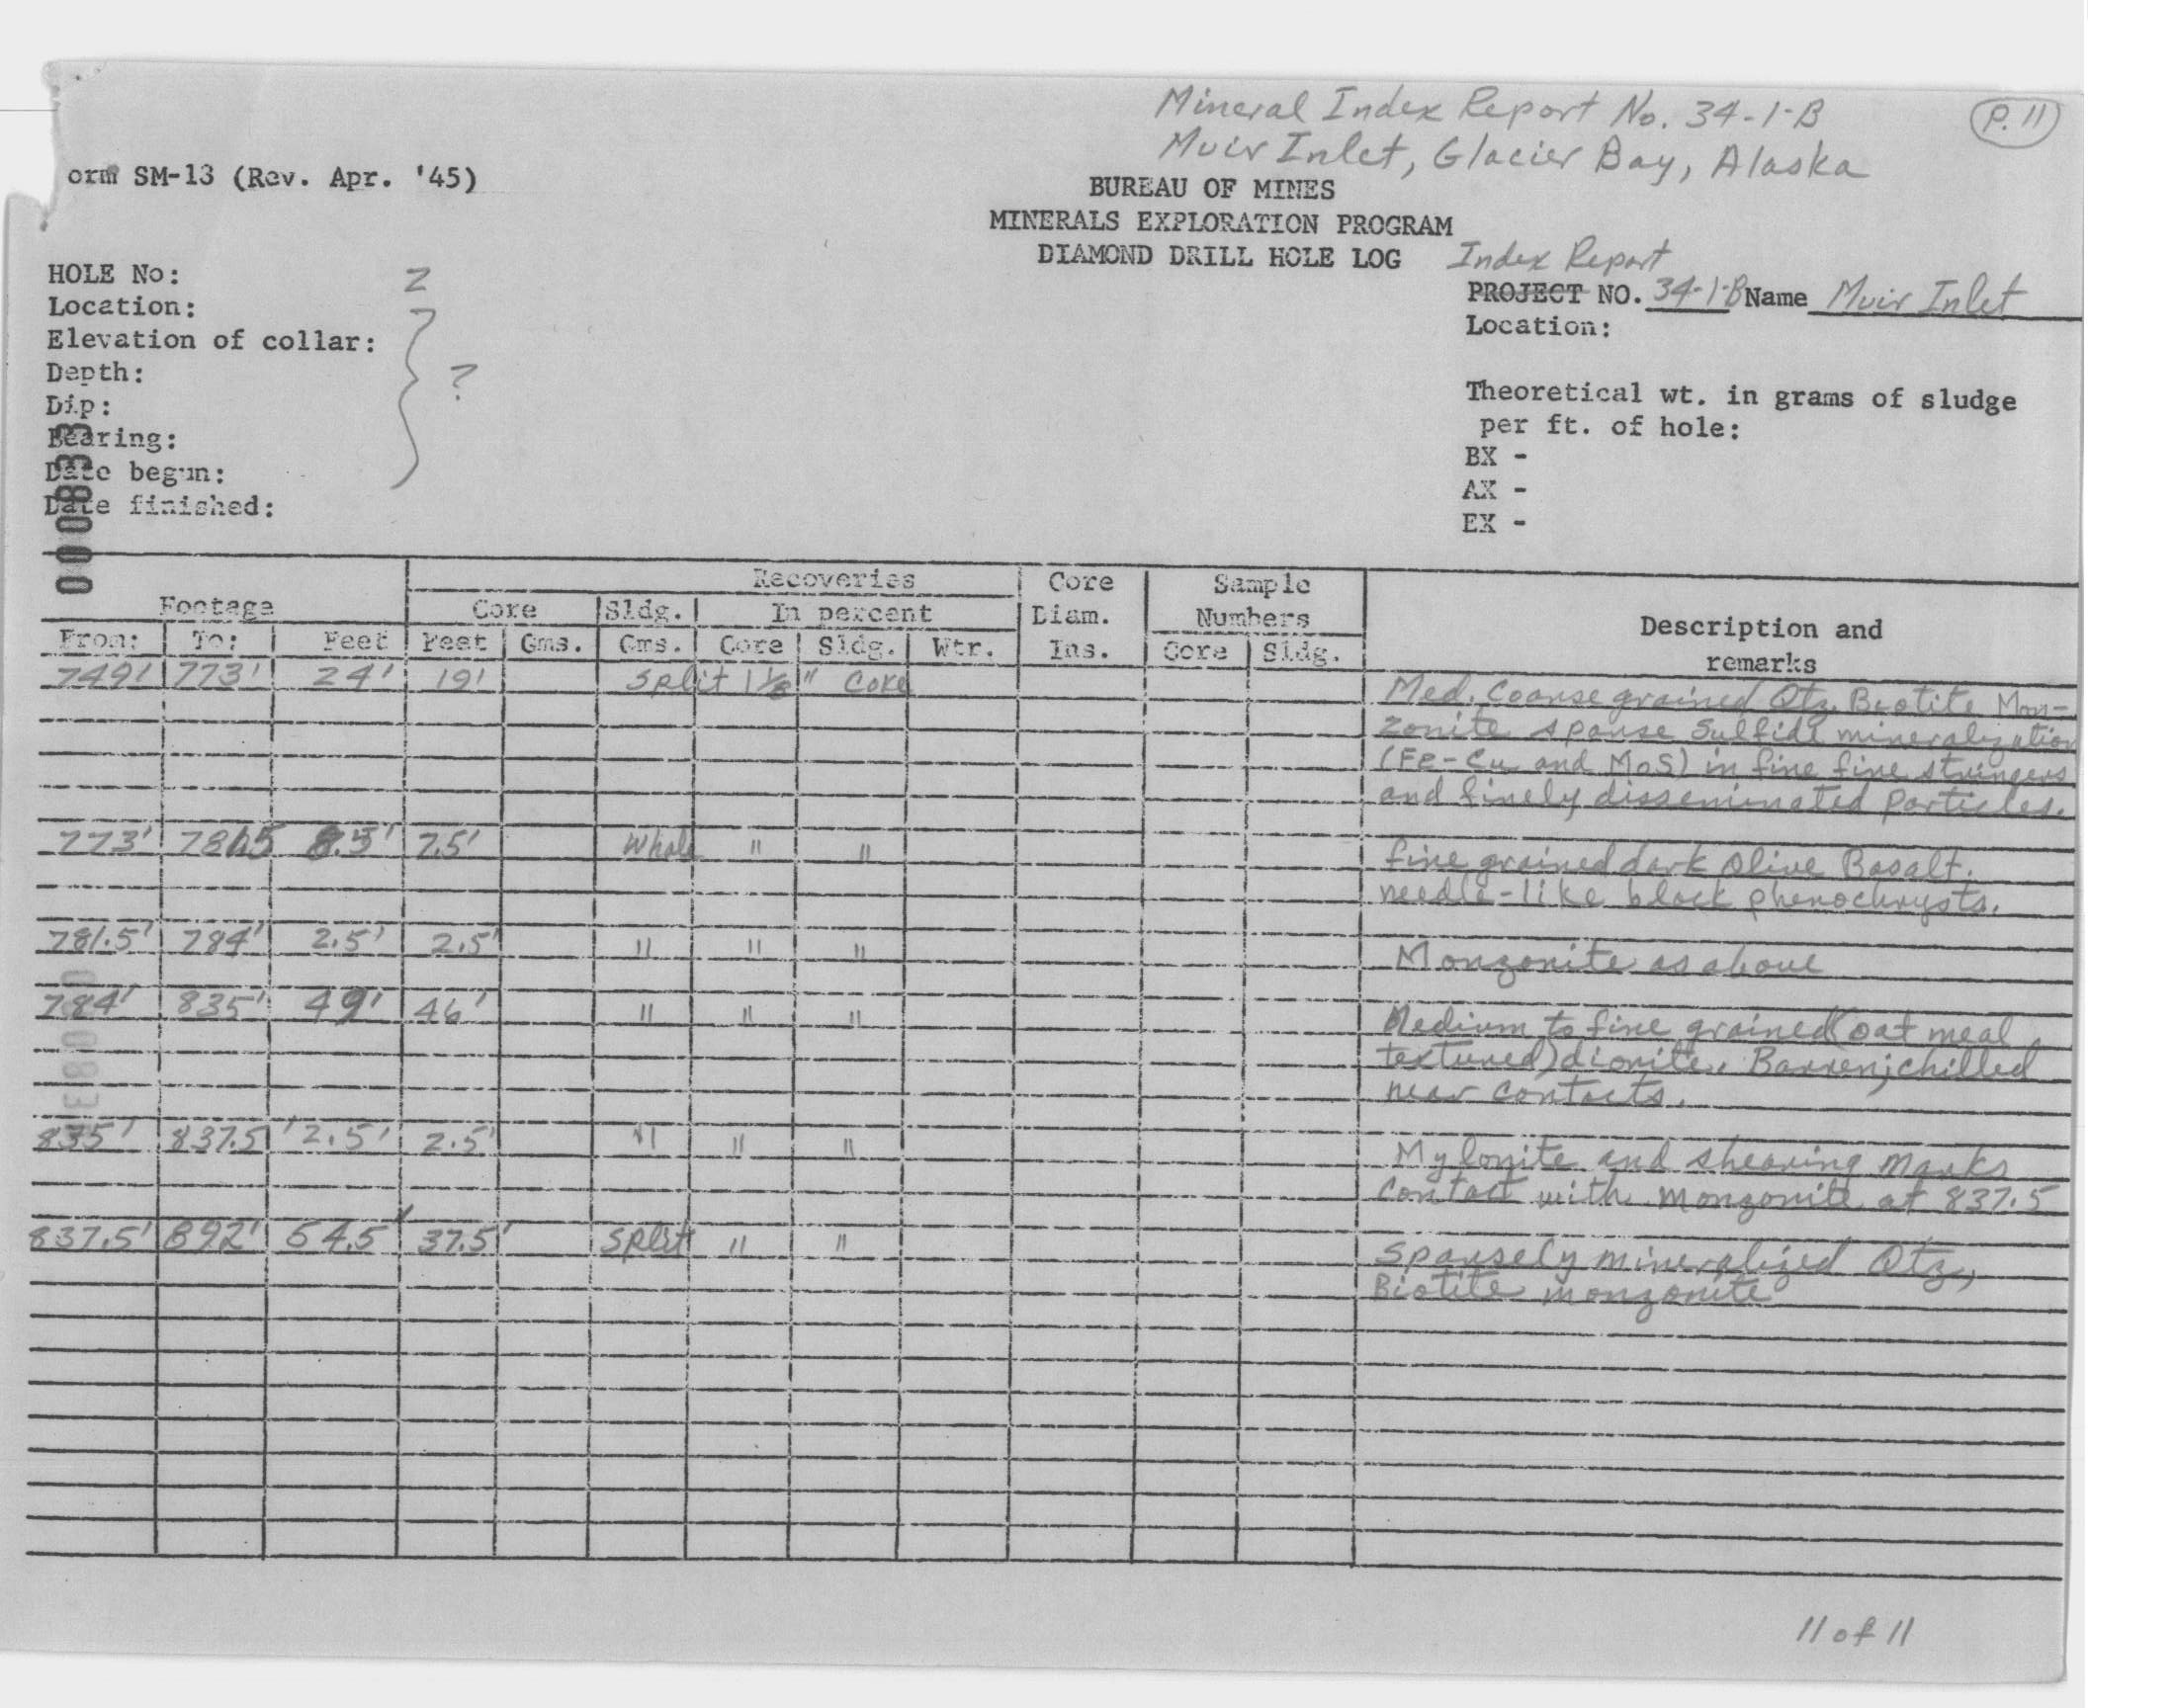 Mineral Index Report No. 34-1-B
P. 11
Muir Inlet, Glacier Bay, Alaska
orm SM-13 (Rev. Apr. '45)
BUREAU OF MINES
MINERALS EXPLORATION PROGRAM
DIAMOND DRILL HOLE LOG
Index Report
HOLE No: 2
PROJECT NO. 34-1-B Name Muir Inlet
Location:
Location:
Elevation of collar:
Depth: ?
Dip:
Bearing:
Date begun:
Date finished:
Theoretical wt. in grams of sludge
per ft. of hole:
BX -
AX -
EX -
00083
Footage Recoveries Core Sample Description and
Core Sldg. In percent Diam. Numbers remarks
From: To: Feet Feet Gms. Gms. Core Sldg. Wtr. Ins. Core Sldg.
749' 773' 24' 19' Split 1 1/8" Core Med. Coarse grained Qtz. Biotite Mon-
zonite sparse Sulfide mineralization
(Fe-Cu and MoS) in fine fine stringers
and finely disseminated particles.
773' 781.5 8.5' 7.5' Whole " " fine grained dark olive Basalt.
needle-like black phenochrysts.
781.5' 784' 2.5' 2.5' " " " Monzonite as above
784' 835' 49' 46' " " " Medium to fine grained (oat meal
textured) diorite. Barren; chilled
near contacts.
835' 837.5' 2.5' 2.5' " " " Mylonite and shearing marks
contact with monzonite at 837.5
837.5' 892' 54.5' 37.5' Split " " Sparsely mineralized Qtz,
Biotite monzonite
11 of 11